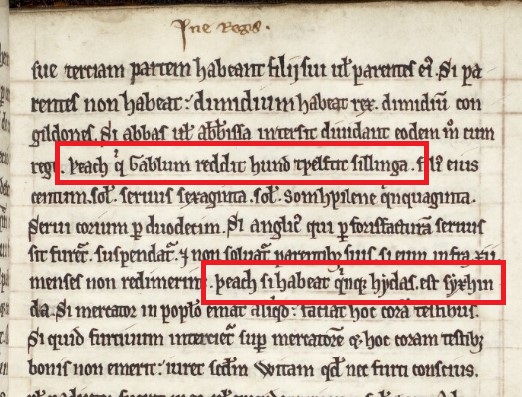 Ine Regis.
sue terciam partem habeant filij sui ul' parentes ei'. Si pa
rentes non habeat: dimidium habeat rex. dimidiū con
gildones. Si abbas ul' abb'issa intersit diuidant eodem m° cum
rege. Ƿeach q' Gablum reddit hund tƿelftit sillinga. fili' eius
centum. sol'. seruus sexaginta. sol'. somhpilene q'nquaginta.
Serui corium p duodecim. Si anglic' qui p forisfacturā seruus
sit furet'. suspendat' ⁊ non soluat' parentib; suis si eum infra xii
menses non redimerint. Ƿeach si habeat q'nq; hydas. est syxhin
da. Si mercator in pop'lo emat aliq'd. faciat hoc corā testibus.
Si quid furtiuum interciet' sup mercatorē q; hoc coram testib;
bonis non emerit: iuret scd'm Witam qd' nec furti conscius.